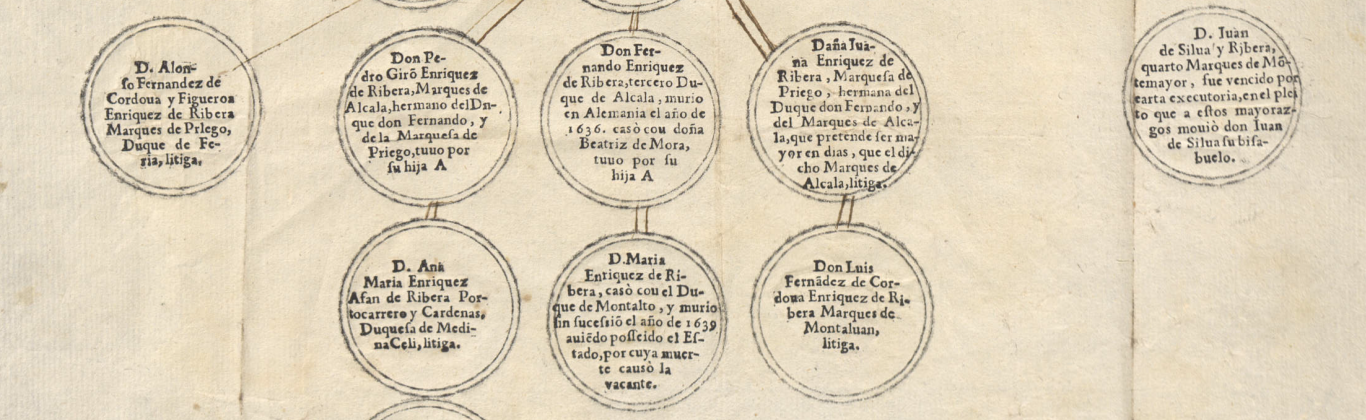 D. Alon-
ſo Fernandez de
Cordoua y Figueroa
Enriquez de Ribera
Marques de Prlego,
Duque de Fe-
ria, litiga.
Don Pe-
dro Girõ Enriquez
de Ribera, Marques de
Alcala, hermano del Dn-
que don Fernando, y
de la Marqueſa de
Priego, tuuo por
ſu hija A
Don Fer-
nando Enriquez
de Ribera, tercero Du-
que de Alcala, murio
en Alemania el año de
1636. casò cou doña
Beatriz de Mora,
tuuo por ſu
hija A
Daña Iua-
na Enriquez de
Ribera, Marqueſa de
Priego, hermana del
Duque don Fernando, y
del Marques de Alca-
la, que pretende ſer ma-
yor en dias, que el di-
cho Marques de
Alcala, litiga.
D. Iuan
de Silua y Rjbera,
quarto Marques de Mõ-
temayor, fue vencido por
carta executoria, en el plei
to que a eſtos mayoraz-
gos mouiò don Iuan
de Silua ſu biſa-
buelo.
D. Ana
Maria Enriquez
Afan de Ribera Por-
tocarrero y Cardenas,
Duqueſa de Medi-
na Celi, litiga.
D. Maria
Enriquez de Ri-
bera, casò cou el Du-
que de Montalto, y murio
ſin ſuceſsiõ el año de 1639
auiẽdo poſſeido el Eſ-
tado, por cuya muer-
te causò la
vacante.
Don Luis
Fernãdez de Cor-
doua Enriquez de Ri-
bera Marques de
Montaluan,
litiga.